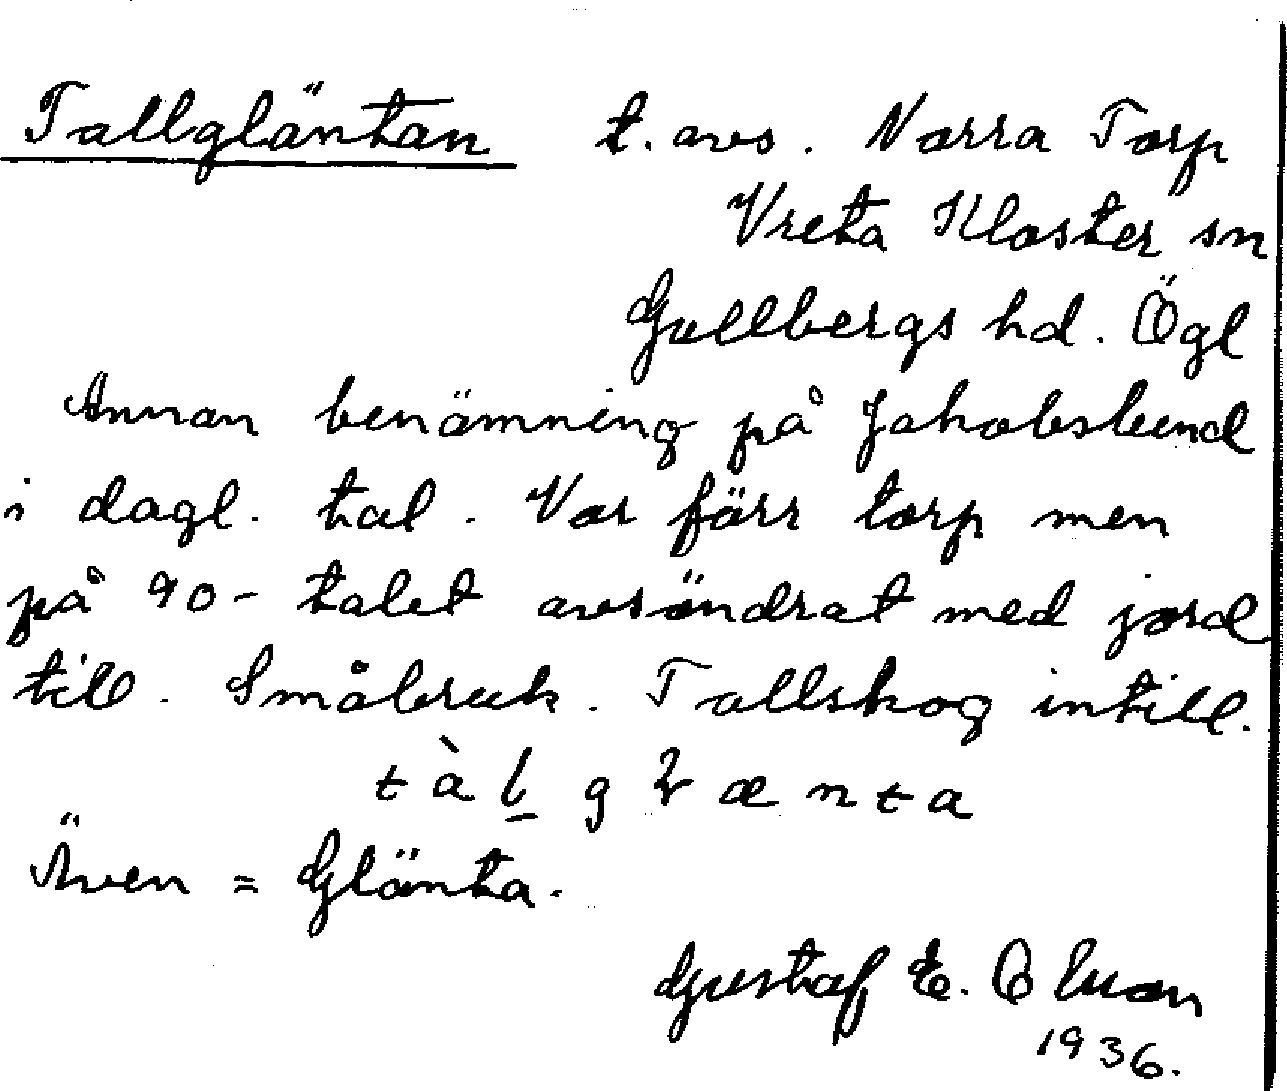 Tallgläntan t. avs. Norra Torp
Vreta Kloster sn
Gullbergs hd. Ögl
Annan benämning på Jakobslund
i dagl. tal. Var förr torp men
på 90-talet avsöndrat med jord
till. Småbruk. Tallskog intill.
Även = Glänta.
Gustaf E.
1936.